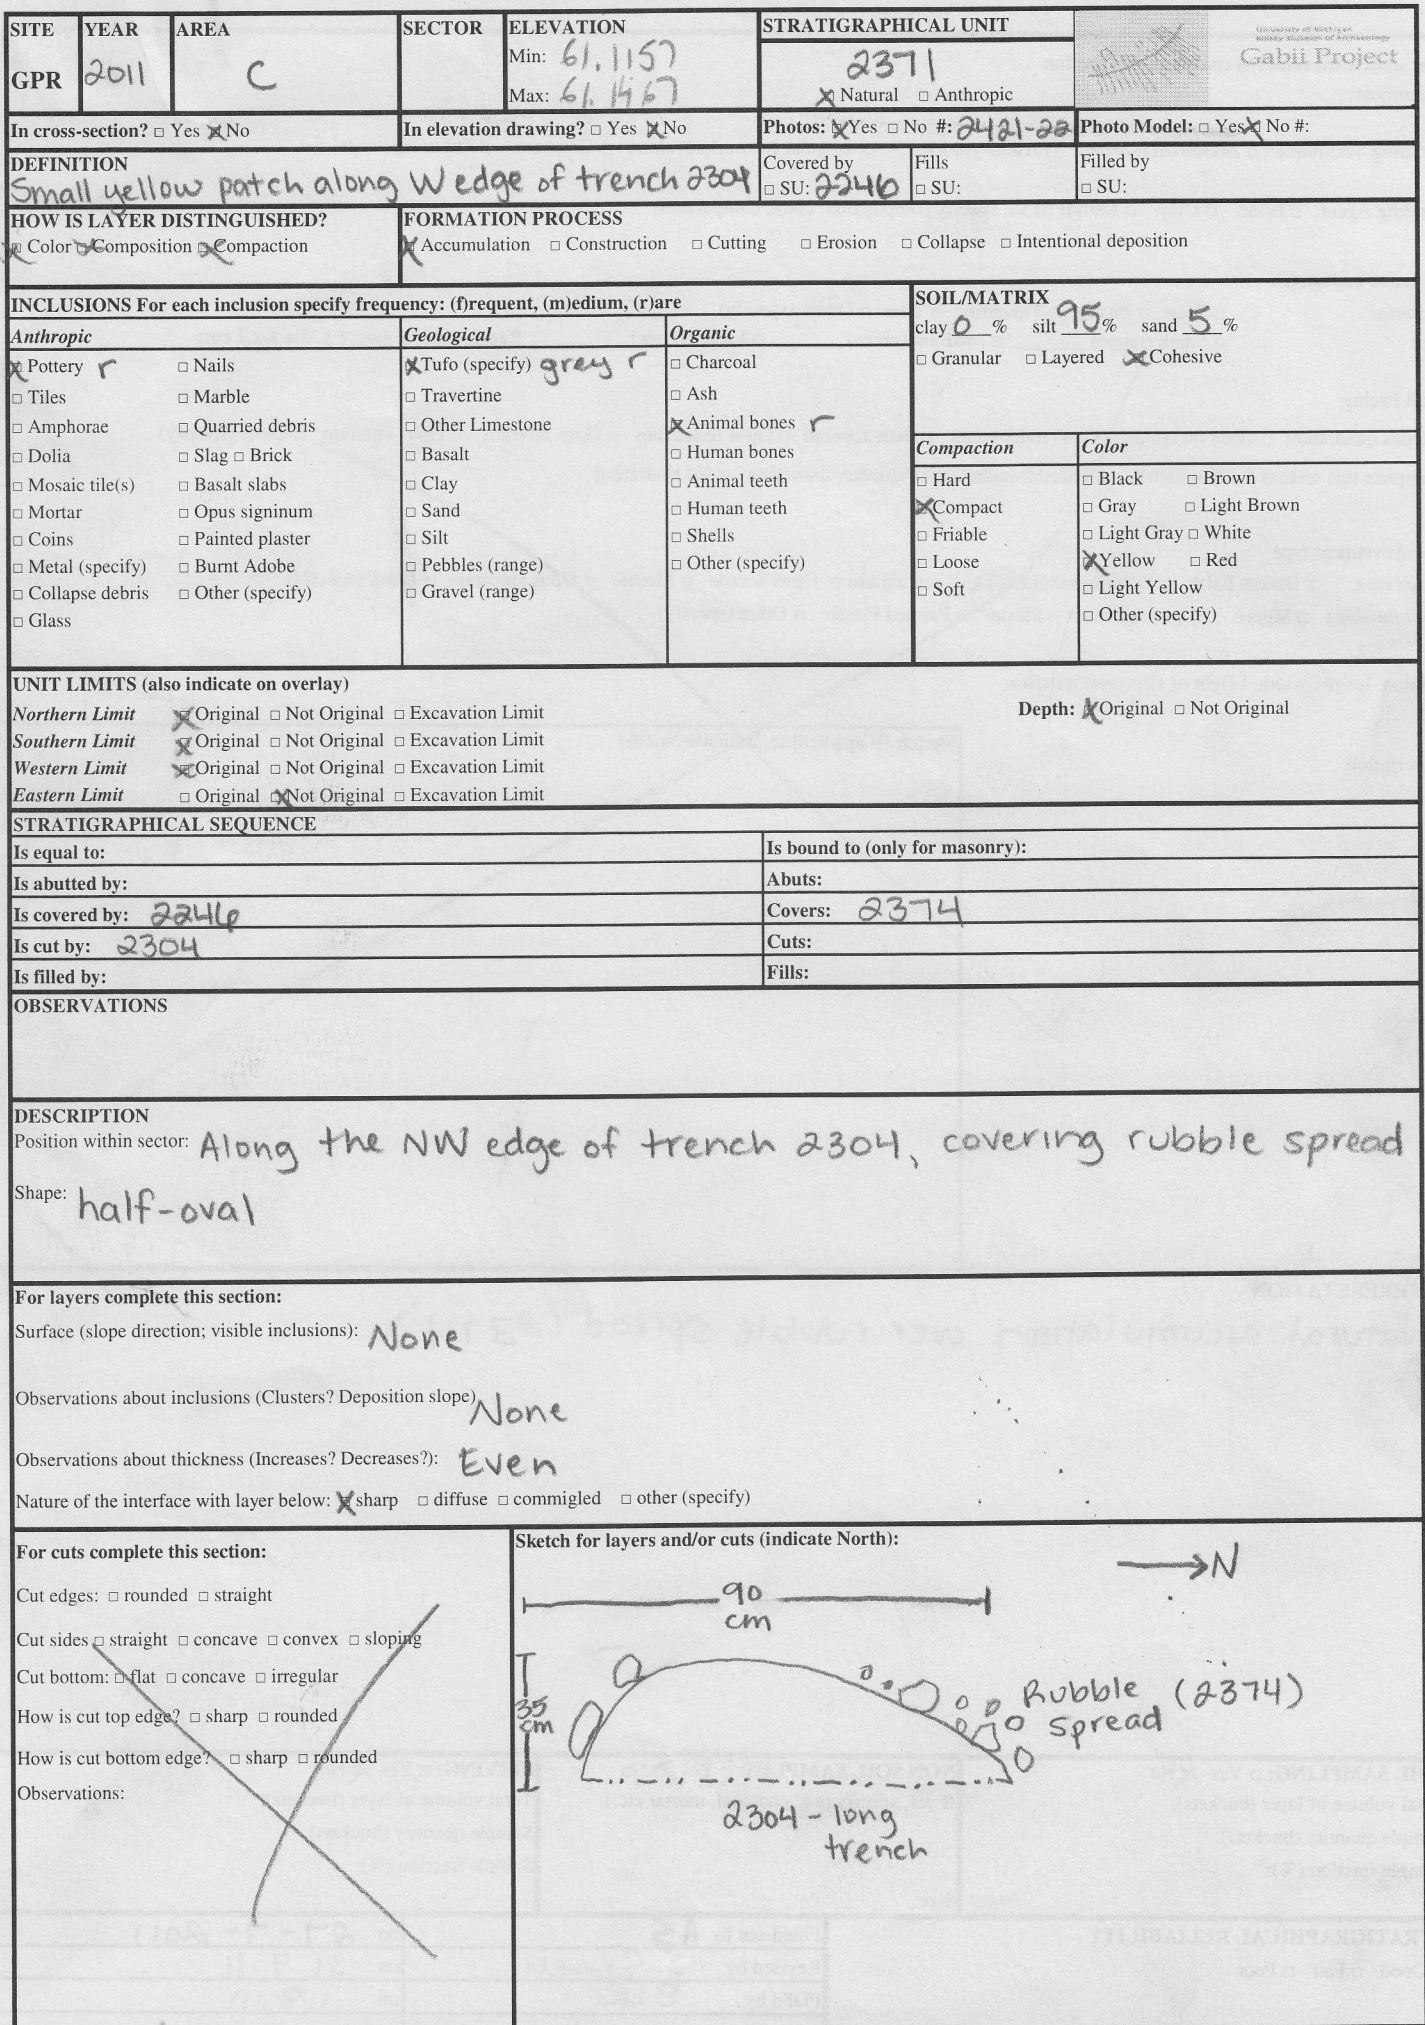 SITE YEAR AREA SECTOR ELEVATION STRATIGRAPHICAL UNIT
GPR 2011 C Min: 61.1157 2371
Max: 61.1467 ☒ Natural □ Anthropic
Gabii Project
In cross-section? □ Yes ☒ No In elevation drawing? □ Yes ☒ No Photos: ☒ Yes □ No #: 2421-22 Photo Model: □ Yes ☒ No #:
DEFINITION
Small yellow patch along W edge of trench 2304
Covered by □ SU: 2246
Fills □ SU:
Filled by □ SU:
HOW IS LAYER DISTINGUISHED?
☒ Color ☒ Composition ☒ Compaction
FORMATION PROCESS
☒ Accumulation □ Construction □ Cutting □ Erosion □ Collapse □ Intentional deposition
INCLUSIONS For each inclusion specify frequency: (f)requent, (m)edium, (r)are
Anthropic
☒ Pottery r □ Nails
□ Tiles □ Marble
□ Amphorae □ Quarried debris
□ Dolia □ Slag □ Brick
□ Mosaic tile(s) □ Basalt slabs
□ Mortar □ Opus signinum
□ Coins □ Painted plaster
□ Metal (specify) □ Burnt Adobe
□ Collapse debris □ Other (specify)
□ Glass
Geological
☒ Tufo (specify) grey r
□ Travertine
□ Other Limestone
□ Basalt
□ Clay
□ Sand
□ Silt
□ Pebbles (range)
□ Gravel (range)
Organic
□ Charcoal
□ Ash
☒ Animal bones r
□ Human bones
□ Animal teeth
□ Human teeth
□ Shells
□ Other (specify)
SOIL/MATRIX
clay 0 % silt 95 % sand 5 %
□ Granular □ Layered ☒ Cohesive
Compaction
□ Hard
☒ Compact
□ Friable
□ Loose
□ Soft
Color
□ Black □ Brown
□ Gray □ Light Brown
□ Light Gray □ White
☒ Yellow □ Red
□ Light Yellow
□ Other (specify)
UNIT LIMITS (also indicate on overlay)
Northern Limit ☒ Original □ Not Original □ Excavation Limit Depth: ☒ Original □ Not Original
Southern Limit ☒ Original □ Not Original □ Excavation Limit
Western Limit ☒ Original □ Not Original □ Excavation Limit
Eastern Limit □ Original ☒ Not Original □ Excavation Limit
STRATIGRAPHICAL SEQUENCE
Is equal to: Is bound to (only for masonry):
Is abutted by: Abuts:
Is covered by: 2246 Covers: 2374
Is cut by: 2304 Cuts:
Is filled by: Fills:
OBSERVATIONS
DESCRIPTION
Position within sector: Along the NW edge of trench 2304, covering rubble spread
Shape: half-oval
For layers complete this section:
Surface (slope direction; visible inclusions): None
Observations about inclusions (Clusters? Deposition slope) None
Observations about thickness (Increases? Decreases?): Even
Nature of the interface with layer below: ☒ sharp □ diffuse □ commigled □ other (specify)
For cuts complete this section:
Cut edges: □ rounded □ straight
Cut sides □ straight □ concave □ convex □ sloping
Cut bottom: □ flat □ concave □ irregular
How is cut top edge? □ sharp □ rounded
How is cut bottom edge? □ sharp □ rounded
Observations:
Sketch for layers and/or cuts (indicate North):
N
90
cm
35
cm
Rubble (2374)
spread
2304 - long
trench